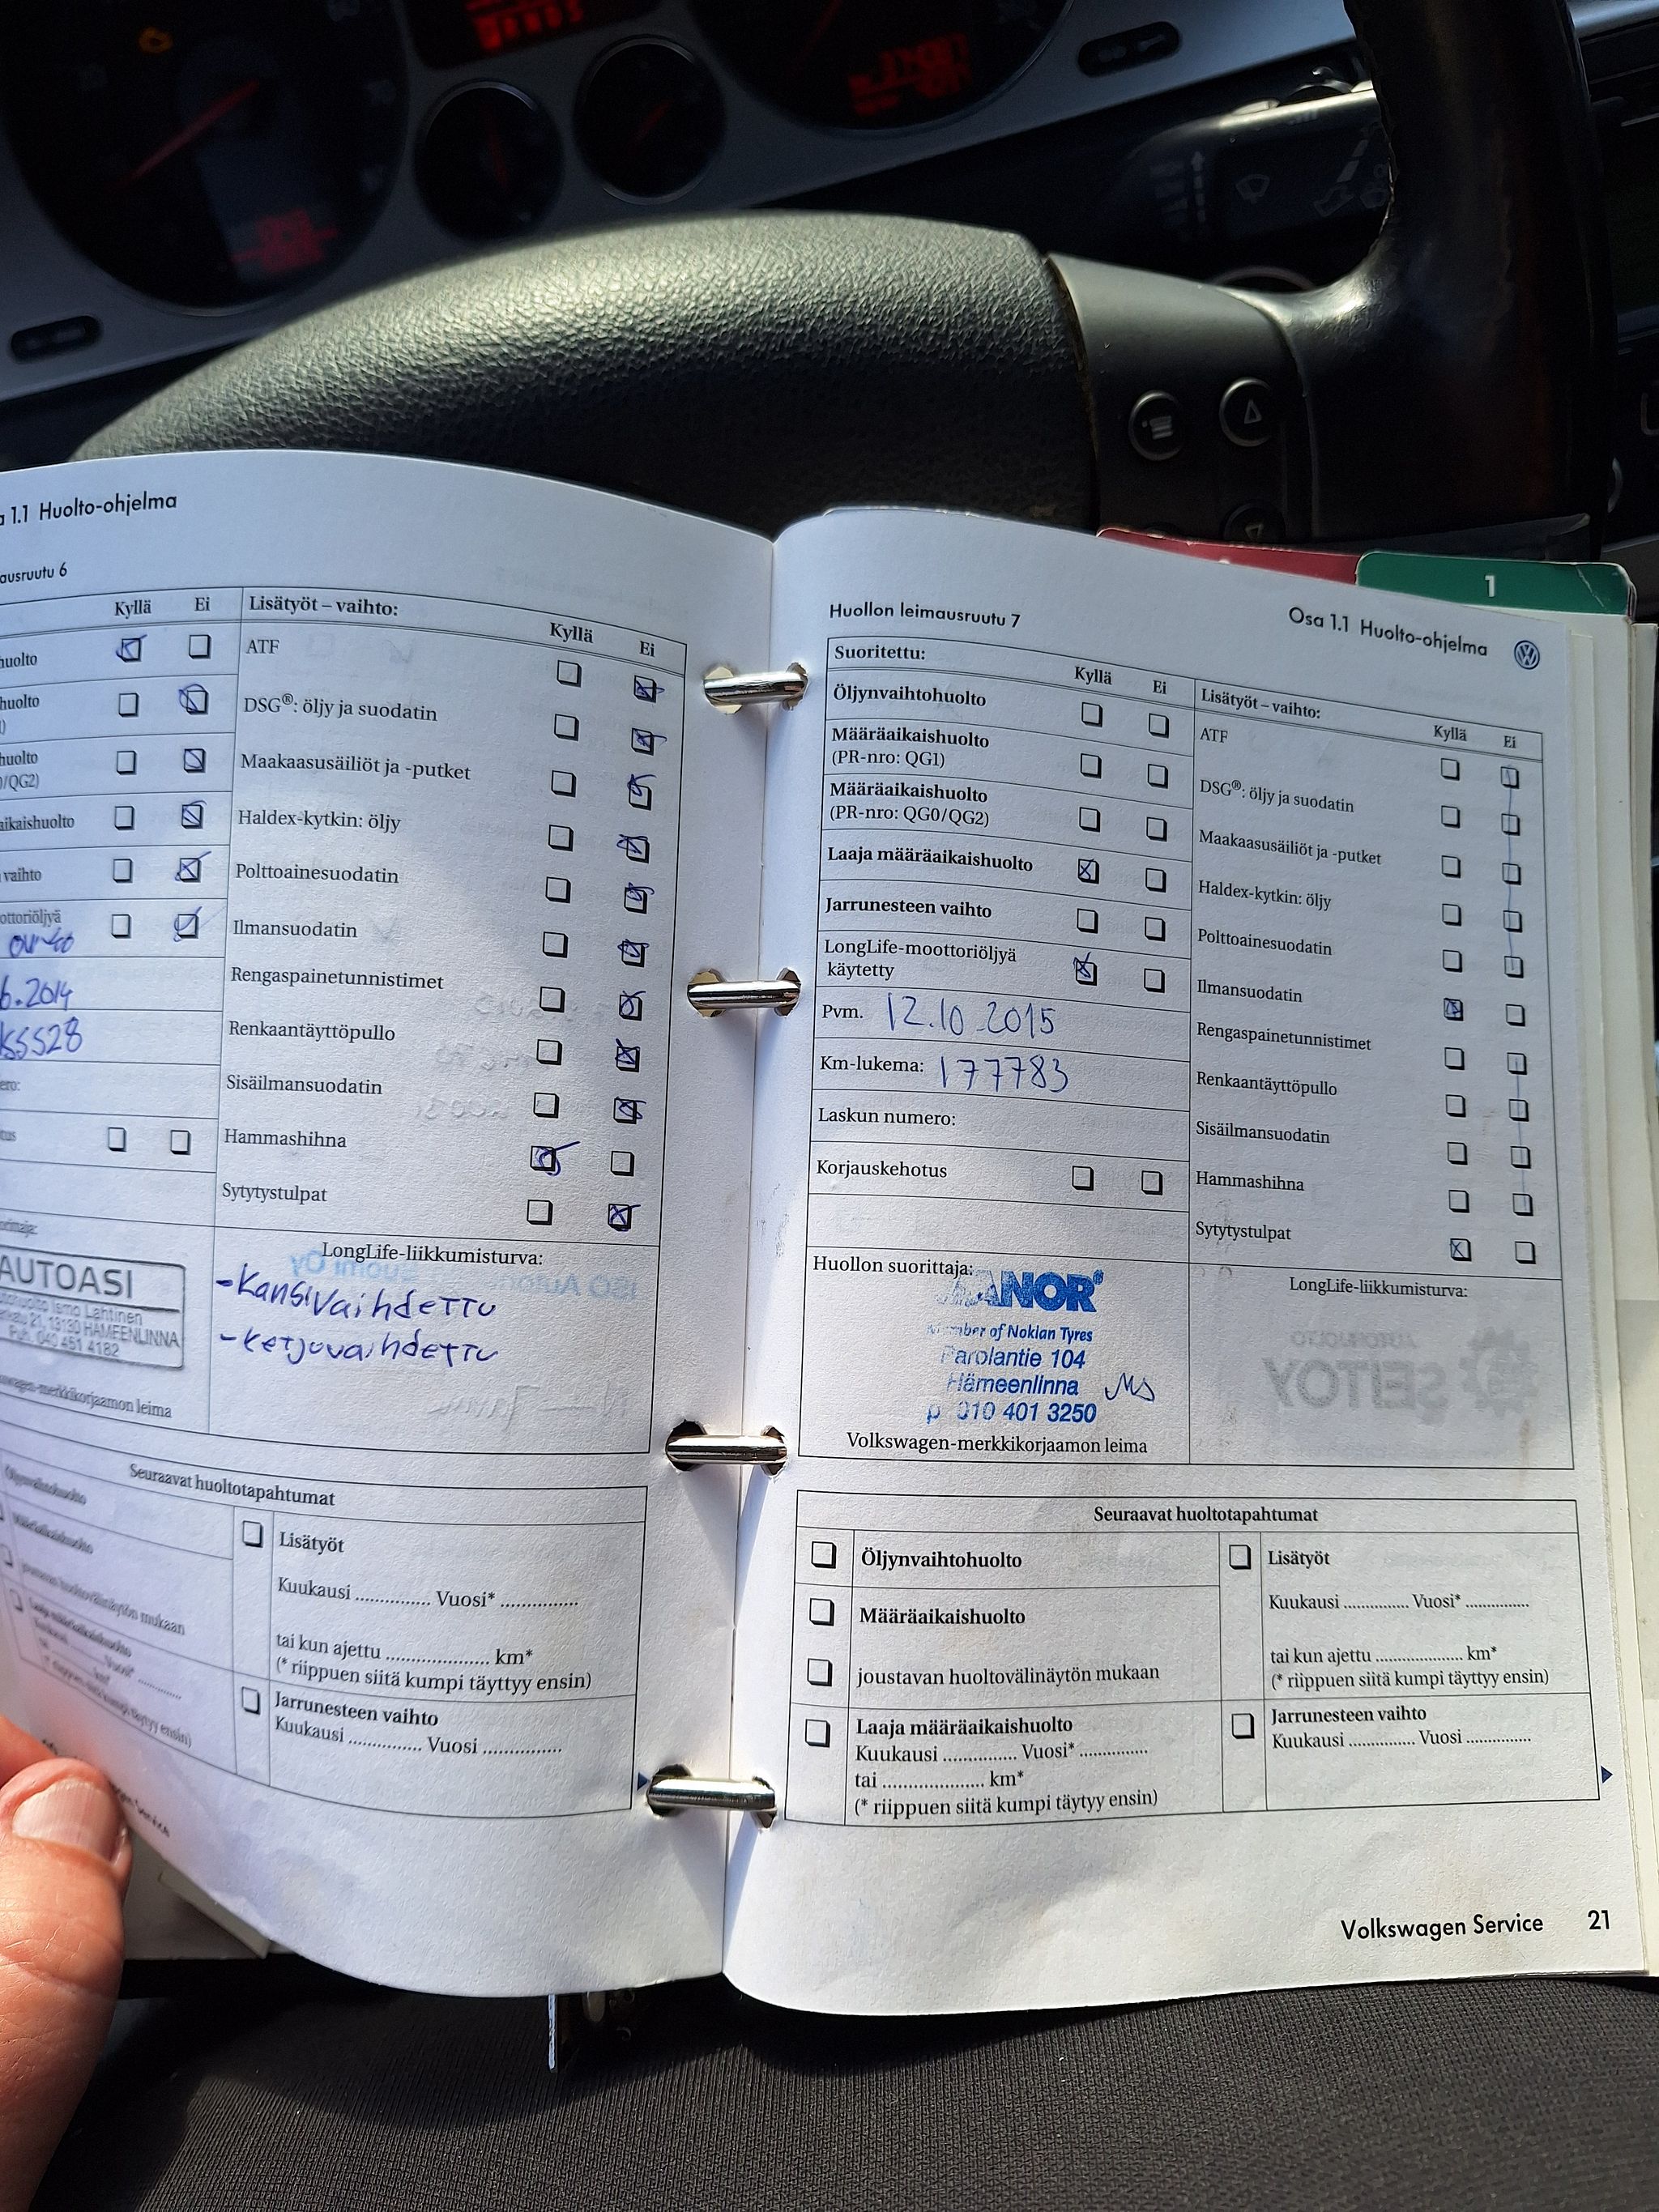 1.1 Huolto-ohjelma
ausruutu 6
Kyllä Ei
huolto
huolto
huolto
/QG2)
aikaishuolto
vaihto
ottoriöljyä
6.2014
Lisätyöt – vaihto:
Kyllä Ei
ATF
DSG®: öljy ja suodatin
Maakaasusäiliöt ja -putket
Haldex-kytkin: öljy
Polttoainesuodatin
Ilmansuodatin
Rengaspainetunnistimet
Renkaantäyttöpullo
Sisäilmansuodatin
Hammashihna
Sytytystulpat
AUTOASI
Ismo Lahtinen
21, 13130 HÄMEENLINNA
Puh. 040 451 4182
wagen-merkkikorjaamon leima
LongLife-liikkumisturva:
-Kansi vaihdettu
-ketju vaihdettu
Seuraavat huoltotapahtumat
Öljynvaihtohuolto
Määräaikaishuolto
joustavan huoltovälinäytön mukaan
Laaja määräaikaishuolto
Lisätyöt
Kuukausi ............... Vuosi* ...............
tai kun ajettu .................... km*
(* riippuen siitä kumpi täyttyy ensin)
Jarrunesteen vaihto
Kuukausi .............. Vuosi ...............
1
Huollon leimausruutu 7
Osa 1.1 Huolto-ohjelma
Suoritettu:
Kyllä Ei
Öljynvaihtohuolto
Määräaikaishuolto
(PR-nro: QG1)
Määräaikaishuolto
(PR-nro: QG0/QG2)
Laaja määräaikaishuolto
Jarrunesteen vaihto
LongLife-moottoriöljyä
käytetty
Pvm. 12.10.2015
Km-lukema: 177783
Laskun numero:
Korjauskehotus
Lisätyöt – vaihto:
Kyllä Ei
ATF
DSG®: öljy ja suodatin
Maakaasusäiliöt ja -putket
Haldex-kytkin: öljy
Polttoainesuodatin
Ilmansuodatin
Rengaspainetunnistimet
Renkaantäyttöpullo
Sisäilmansuodatin
Hammashihna
Sytytystulpat
Huollon suorittaja:
ANOR®
Member of Nokian Tyres
Parolantie 104
Hämeenlinna
p 010 401 3250
Volkswagen-merkkikorjaamon leima
LongLife-liikkumisturva:
Seuraavat huoltotapahtumat
Öljynvaihtohuolto
Määräaikaishuolto
joustavan huoltovälinäytön mukaan
Laaja määräaikaishuolto
Kuukausi ............... Vuosi* ..............
tai ..................... km*
(* riippuen siitä kumpi täytyy ensin)
Lisätyöt
Kuukausi .............. Vuosi* ..............
tai kun ajettu .................... km*
(* riippuen siitä kumpi täyttyy ensin)
Jarrunesteen vaihto
Kuukausi .............. Vuosi ..............
Volkswagen Service 21